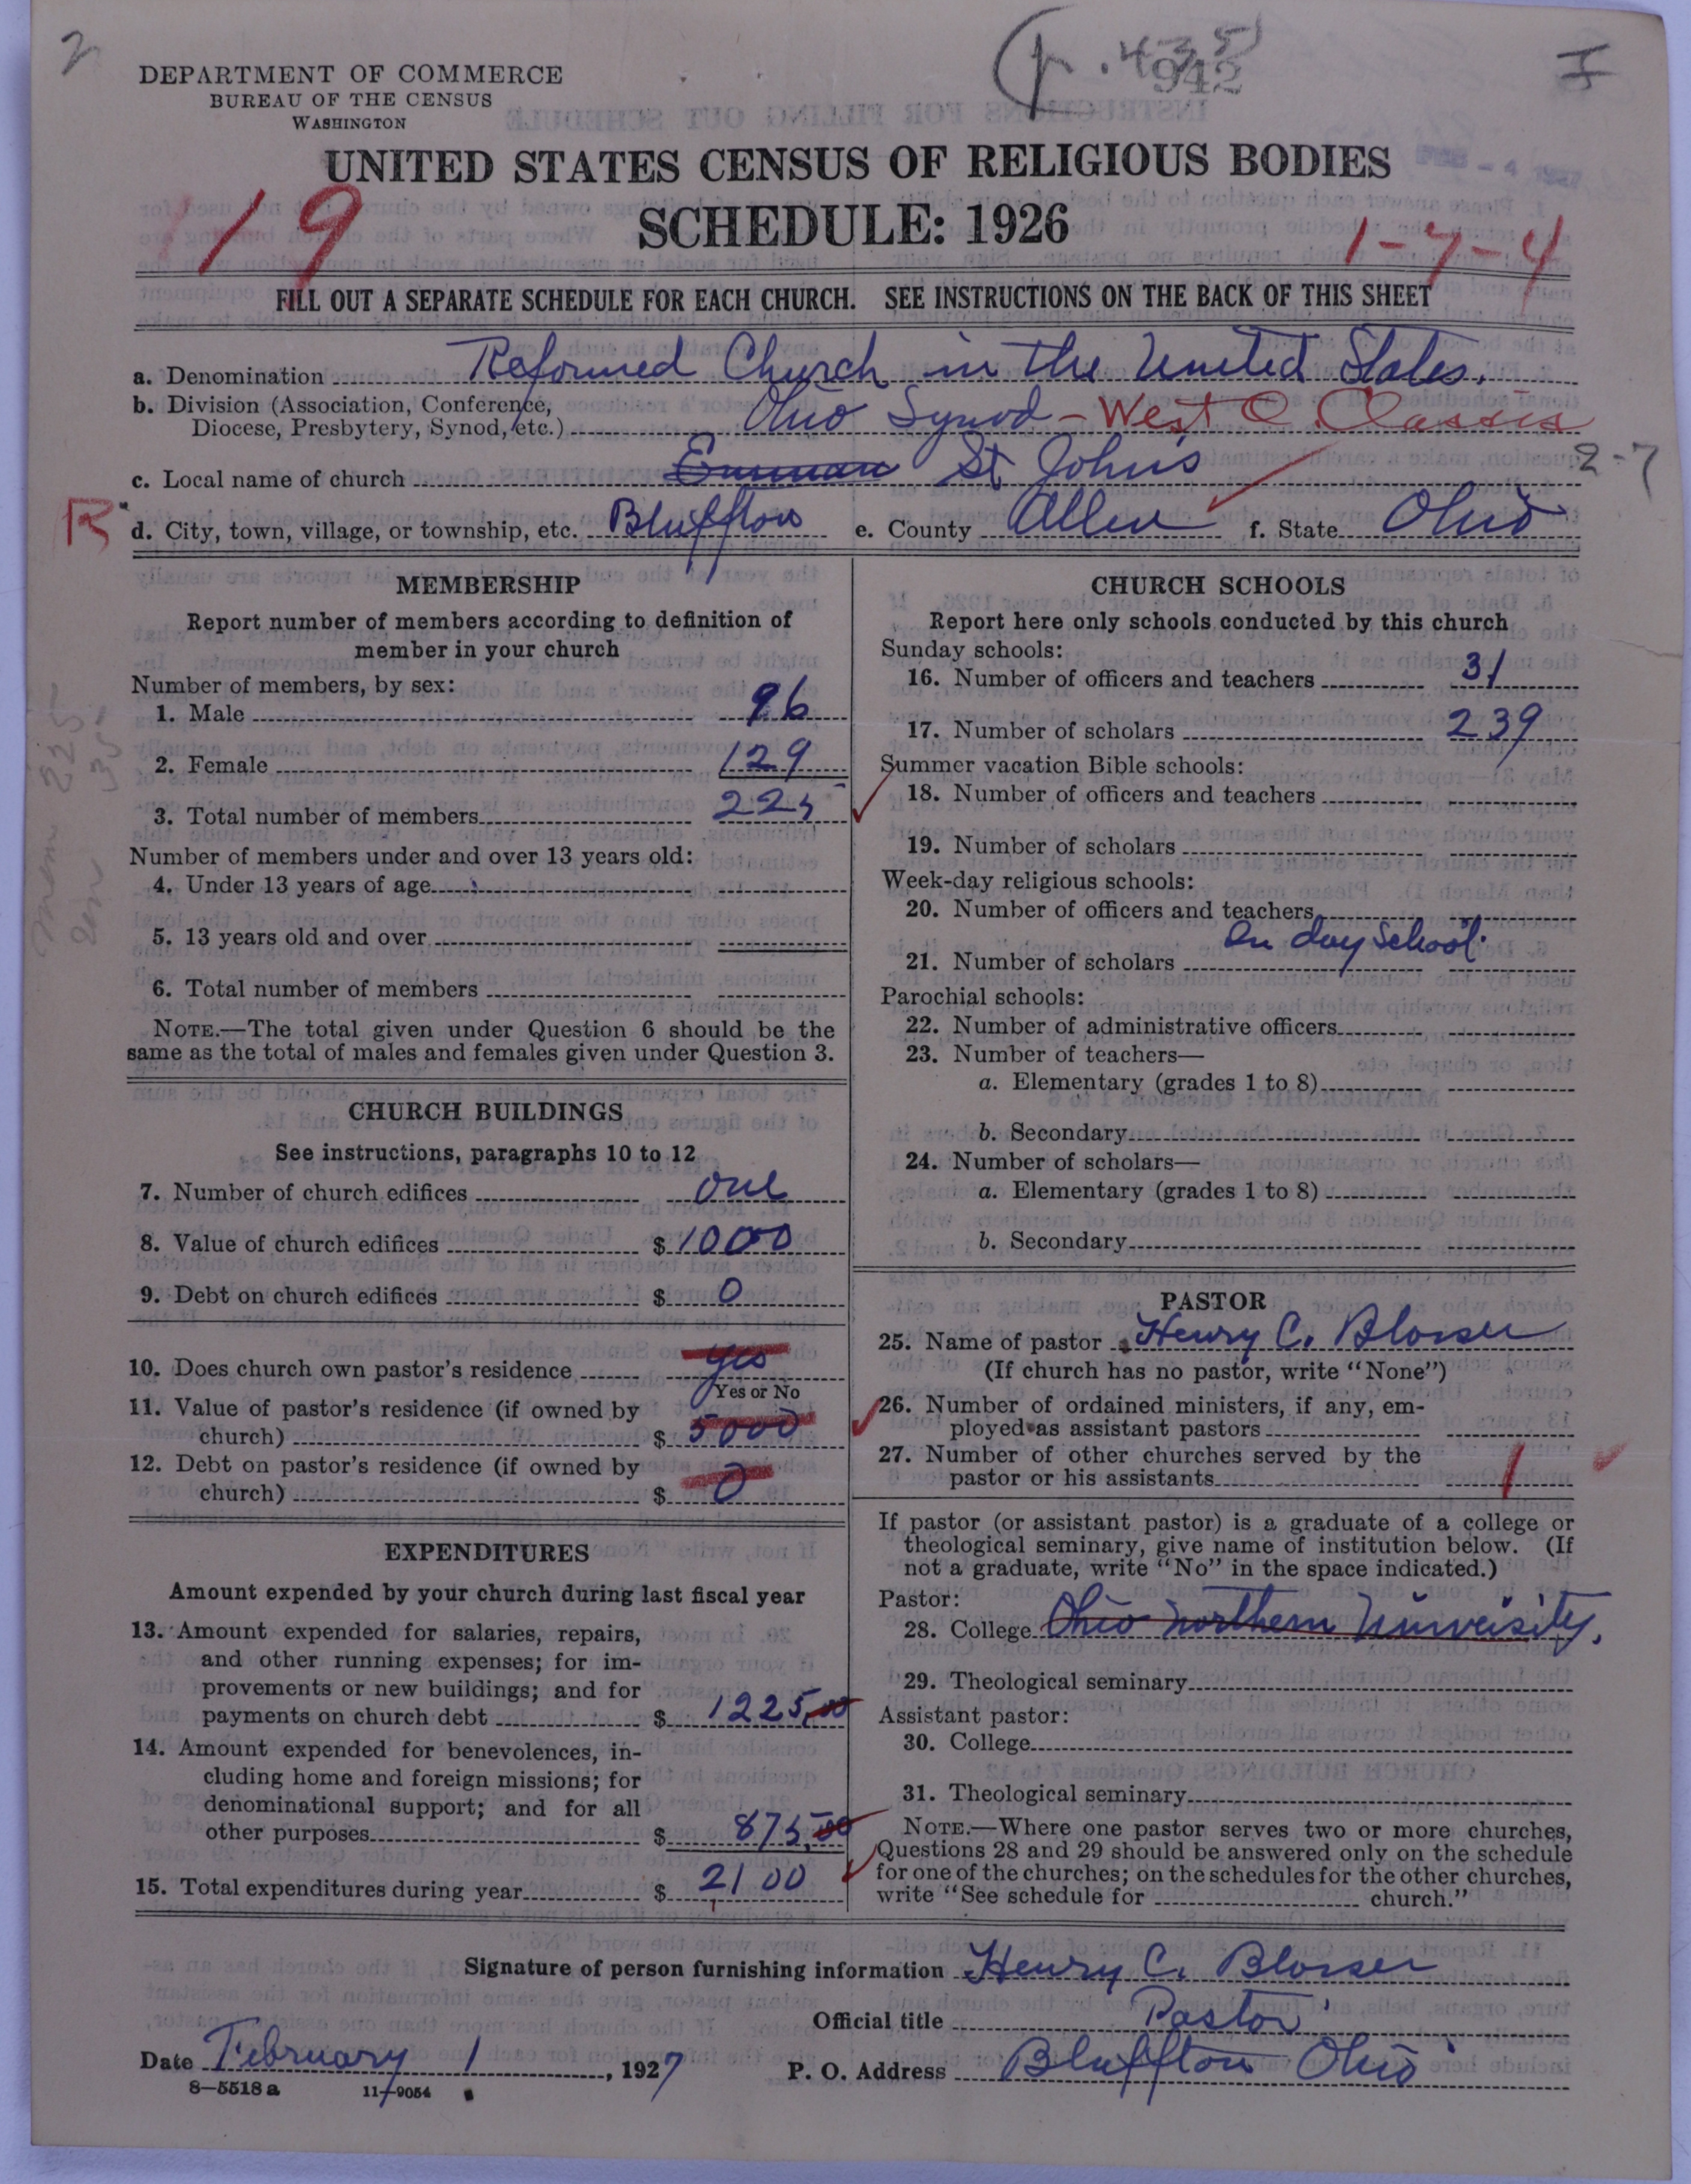 2
(p. 435)
942
I
DEPARTMENT OF COMMERCE
BUREAU OF THE CENSUS
WASHINGTON
UNITED STATES CENSUS OF RELIGIOUS BODIES
FEB - 4 1927
SCHEDULE: 1926
19
1-7-4
FILL OUT A SEPARATE SCHEDULE FOR EACH CHURCH. SEE INSTRUCTIONS ON THE BACK OF THIS SHEET
a. Denomination Reformed Church in the United States.
b. Division (Association, Conference,
Diocese, Presbytery, Synod, etc.) Ohio Synod - West O. Classis
c. Local name of church St Johns
2-7
R
d. City, town, village, or township, etc. Bluffton e. County Allen f. State Ohio
MEMBERSHIP
Report number of members according to definition of
member in your church
Number of members, by sex:
1. Male 96
2. Female 129
3. Total number of members 225
Number of members under and over 13 years old:
4. Under 13 years of age
5. 13 years old and over
6. Total number of members
NOTE.—The total given under Question 6 should be the
same as the total of males and females given under Question 3.
CHURCH BUILDINGS
See instructions, paragraphs 10 to 12
7. Number of church edifices one
8. Value of church edifices $ 1000
9. Debt on church edifices $ 0
10. Does church own pastor's residence yes
Yes or No
11. Value of pastor's residence (if owned by
church) $ 5000
12. Debt on pastor's residence (if owned by
church) $ 0
EXPENDITURES
Amount expended by your church during last fiscal year
13. Amount expended for salaries, repairs,
and other running expenses; for im-
provements or new buildings; and for
payments on church debt $ 1225,00
14. Amount expended for benevolences, in-
cluding home and foreign missions; for
denominational support; and for all
other purposes $ 875,00
15. Total expenditures during year $ 2100
CHURCH SCHOOLS
Report here only schools conducted by this church
Sunday schools:
16. Number of officers and teachers 31
17. Number of scholars 239
Summer vacation Bible schools:
18. Number of officers and teachers
19. Number of scholars
Week-day religious schools:
20. Number of officers and teachers
On day School.
21. Number of scholars
Parochial schools:
22. Number of administrative officers
23. Number of teachers—
a. Elementary (grades 1 to 8)
b. Secondary
24. Number of scholars—
a. Elementary (grades 1 to 8)
b. Secondary
PASTOR
25. Name of pastor Henry C. Blosser
(If church has no pastor, write "None")
26. Number of ordained ministers, if any, em-
ployed as assistant pastors
27. Number of other churches served by the
pastor or his assistants 1
If pastor (or assistant pastor) is a graduate of a college or
theological seminary, give name of institution below. (If
not a graduate, write "No" in the space indicated.)
Pastor:
28. College Ohio Northern University.
29. Theological seminary
Assistant pastor:
30. College
31. Theological seminary
NOTE.—Where one pastor serves two or more churches,
Questions 28 and 29 should be answered only on the schedule
for one of the churches; on the schedules for the other churches,
write "See schedule for church."
Signature of person furnishing information Henry C. Blosser
Official title Pastor
Date February 1, 1927 P. O. Address Bluffton Ohio
8—5518 a 11—9054